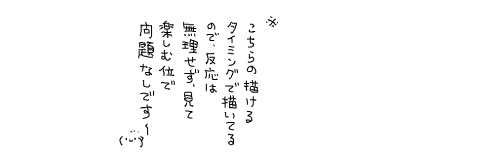 ※
こちらの描ける
タイミングで描いてる
ので、反応は
無理せず、見て
楽しむ位で
問題なしです〜